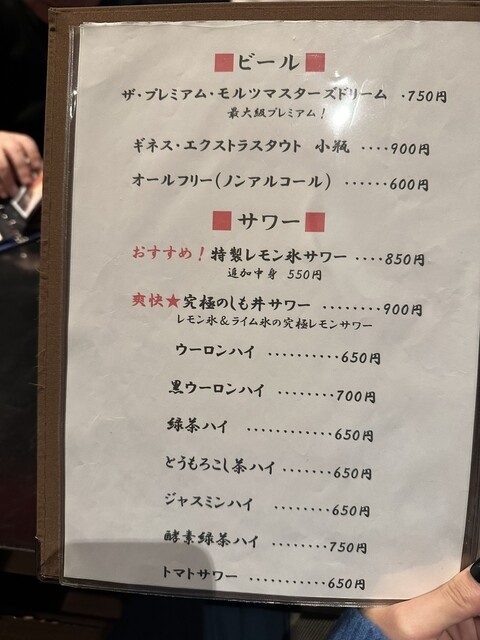 ■ビール■
ザ・プレミアム・モルツマスターズドリーム ・750円
最大級プレミアム！
ギネス・エクストラスタウト 小瓶 ････900円
オールフリー(ノンアルコール) ･･････600円
■サワー■
おすすめ！特製レモン氷サワー ････850円
追加中身 550円
爽快★究極のしも丼サワー ････････900円
レモン氷&ライム氷の究極レモンサワー
ウーロンハイ ･･････････650円
黒ウーロンハイ ････････700円
緑茶ハイ ････････････650円
とうもろこし茶ハイ ･･････650円
ジャスミンハイ ････････650円
酵素緑茶ハイ ････････750円
トマトサワー ･･･････････650円